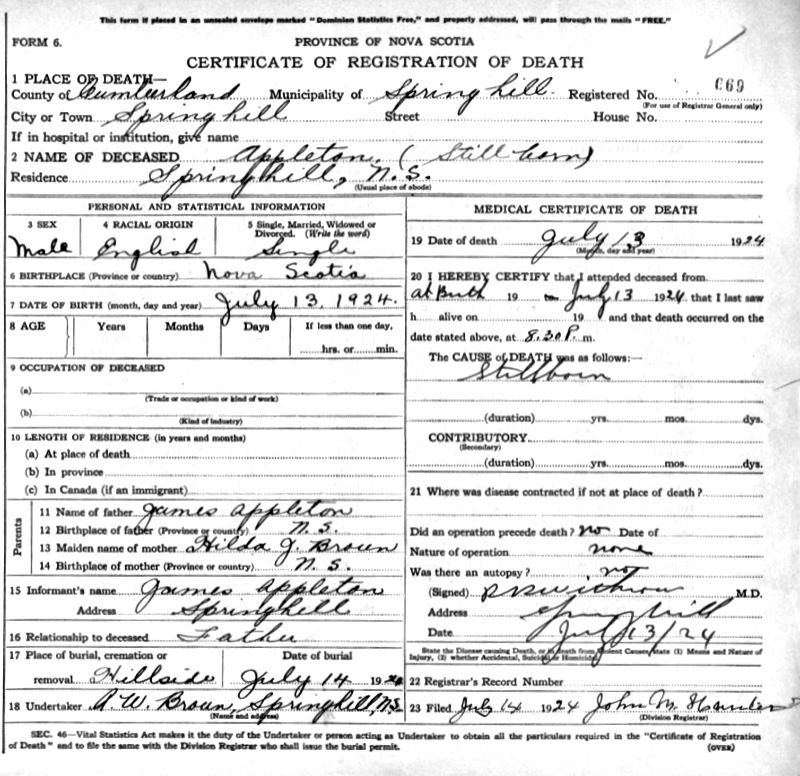 This form if placed in an unsealed envelope marked "Dominion Statistics Free," and properly addressed, will pass through the mails "FREE."
FORM 6.
PROVINCE OF NOVA SCOTIA
CERTIFICATE OF REGISTRATION OF DEATH
1 PLACE OF DEATH—
County of Cumberland Municipality of Springhill Registered No. 669
(For use of Registrar General only)
City or Town Springhill Street House No.
If in hospital or institution, give name
2 NAME OF DECEASED Appleton (Stillborn)
Residence Springhill, N.S.
(Usual place of abode)
PERSONAL AND STATISTICAL INFORMATION
3 SEX 4 RACIAL ORIGIN 5 Single, Married, Widowed or Divorced. (Write the word)
Male English Single
6 BIRTHPLACE (Province or country) Nova Scotia
7 DATE OF BIRTH (month, day and year) July 13, 1924.
8 AGE Years Months Days If less than one day,
hrs. or min.
9 OCCUPATION OF DECEASED
(a)
(Trade or occupation or kind of work)
(b)
(Kind of industry)
10 LENGTH OF RESIDENCE (in years and months)
(a) At place of death
(b) In province
(c) In Canada (if an immigrant)
Parents
11 Name of father James Appleton
12 Birthplace of father (Province or country) N.S.
13 Maiden name of mother Hilda J. Brown
14 Birthplace of mother (Province or country) N.S.
15 Informant's name James Appleton
Address Springhill
16 Relationship to deceased Father
17 Place of burial, cremation or Date of burial
removal Hillside July 14 1924
18 Undertaker A. W. Brown, Springhill, N.S.
(Name and address)
MEDICAL CERTIFICATE OF DEATH
19 Date of death July 13 1924
(Month, day and year)
20 I HEREBY CERTIFY that I attended deceased from
at Birth 19 to July 13 1924 that I last saw
h alive on 19 and that death occurred on
date stated above, at 8.30 P. m.
The CAUSE of DEATH was as follows:—
Stillborn
(duration) yrs. mos. dys.
CONTRIBUTORY
(Secondary)
(duration) yrs. mos. dys.
21 Where was disease contracted if not at place of death?
Did an operation precede death? no Date of
Nature of operation none
Was there an autopsy? not
(Signed) M.D.
Address Springhill
Date July 13/24
State the Disease causing Death, or in death from Violent Causes, state (1) Means and Nature of
Injury, (2) whether Accidental, Suicidal or Homicidal
22 Registrar's Record Number
23 Filed July 14 1924 John M.
(Division Registrar)
SEC. 46—Vital Statistics Act makes it the duty of the Undertaker or person acting as Undertaker to obtain all the particulars required in the "Certificate of Registration
of Death" and to file the same with the Division Registrar who shall issue the burial permit.
(OVER)